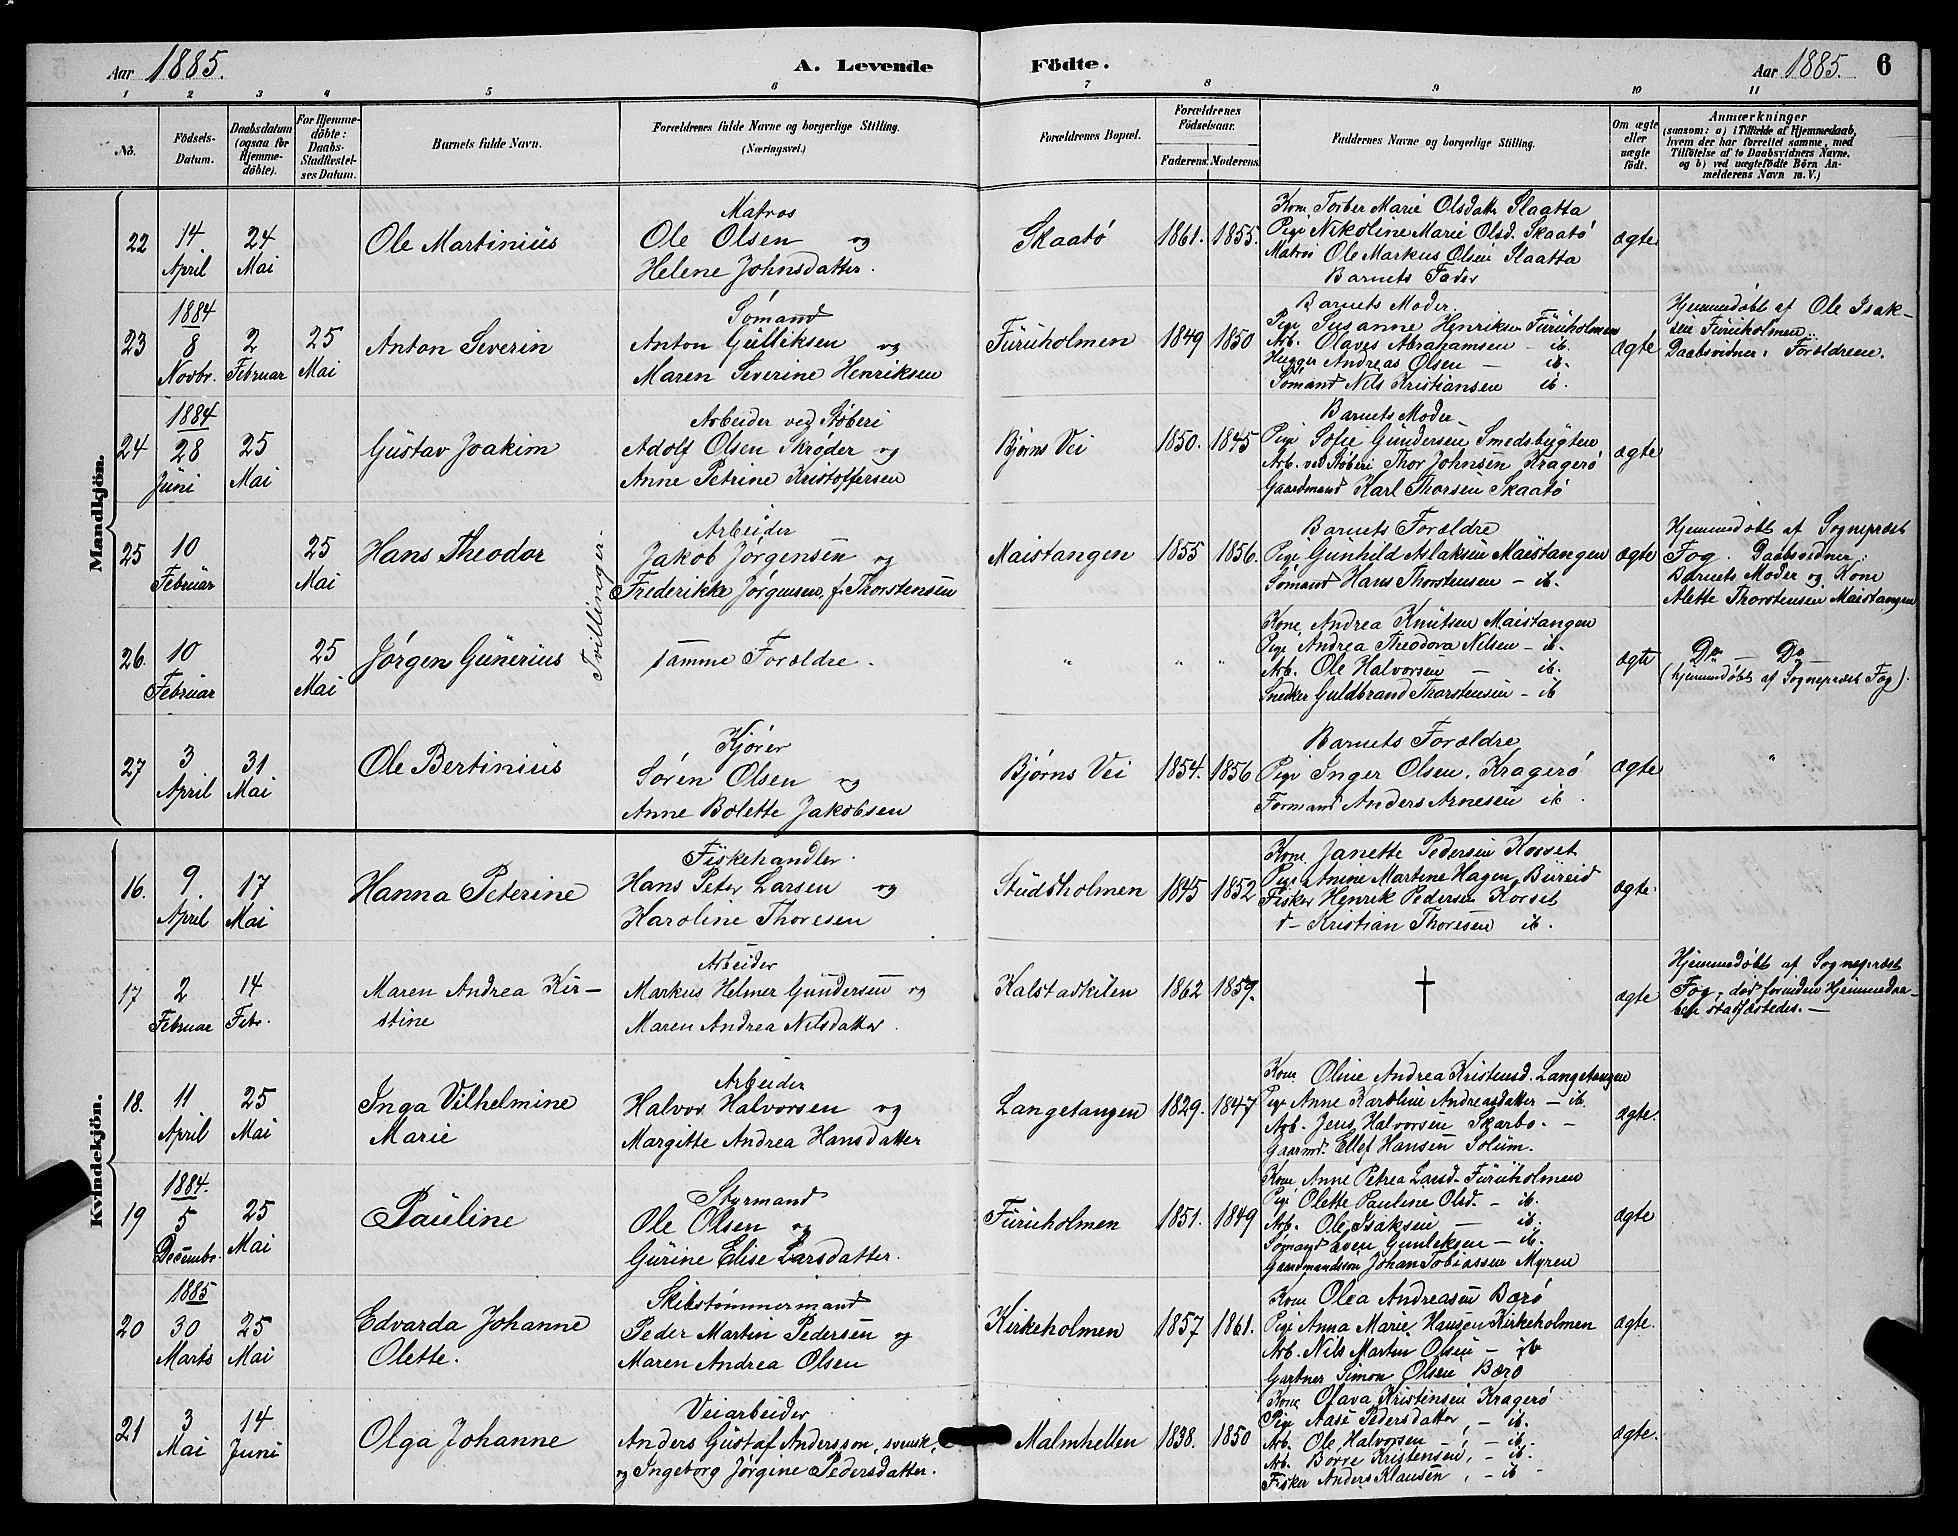 Aar 1885.
A. Levende Födte.
Aar 1885. 6
1 2 3 4 5 6 7 8 9 10 11
No.
Födsels-Datum.
Daabsdatum (ogsaa for Hjemme-döbte).
For Hjemme-döbte: Daabs-Stadfæstel-ses Datum.
Barnets fulde Navn.
Forældrenes fulde Navne og borgerlige Stilling.
(Næringsvei.)
Forældrenes Bopæl.
Forældrenes Födselsaar.
Faderens. Moderens.
Faddernes Navne og borgerlige Stilling.
Om ægte eller uægte födt.
Anmærkninger
(saasom: a) i Tilfælde af Hjemmedaab,
hvem der har forrettet samme, med
Tilföielse af to Daabsvidners Navne,
og b) ved uægtefödte Börn An-
melderens Navn m. V.)
Mandkjön.
22 14 April 24 Mai
Ole Martinius
Matros
Ole Olsen og
Helene Johnsdatter.
Skaatö 1861. 1855.
Kone Torber Marie Olsdatter Slaatta
Pige Nikoline Marie Olsd. Skaatö
Matros Ole Markus Olsen Slaatta
Barnets Fader
ægte
23 1884 8 Novbr. 2 Februar 25 Mai
Anton Severin
Sömand
Anton Gulliksen og
Maren Severine Henriksen
Furuholmen 1849 1850
Barnets Moder
Pige Susanne Henriksen Furuholmen
Arb. Olaves Abrahamsen — ib.
Hugger Andreas Olsen — ib.
Sömand Nils Kristiansen ib.
ægte
Hjemmedöbt af Ole Isak-
sen Furuholmen.
Daabsvidner: Forældrene.
24 1884 28 Juni 25 Mai
Gustav Joakim
Arbeider ved Stöberi
Adolf Olsen Skröder og
Anne Petrine Kristoffersen
Björns Vei 1850. 1845
Barnets Moder
Pige Sofie Gundersen Smedsbygten
Arb. ved Stöberi Thor Johnsen Kragerö
Gaardmand Karl Thorsen Skaatö
ægte
25 10 Februar 25 Mai
Hans Theodor
Tvillinger.
Arbeider
Jakob Jörgensen og
Frederikke Jörgensen, f. Thorstensen
Maistangen 1855 1856.
Barnets Forældre
Pige Gunhild Aslaksen Maistangen
Sömand Hans Thorstensen — ib.
ægte
Hjemmedöbt af Sognepræst
Fog. Daabsvidner:
Barnets Moder og Kone
Alette Thorstensen Maistangen
26. 10 Februar 25 Mai
Jörgen Gunerius
samme Forældre.
" " "
Kone Andrea Knutsen Maistangen
Pige Andrea Theodora Nilsen — ib.
Arb. Ole Halvorsen — ib.
Snedker Guldbrand Thorstensen — ib
ægte
Do — Do —
(hjemmedöbt af Sognepræst Fog).
27 3 April 31 Mai
Ole Bertinius
Kjörer
Sören Olsen og
Anne Bolette Jakobsen
Björns Vei 1854. 1856
Barnets Forældre
Pige Inger Olsen, Kragerö
Formand Anders Arnesen ib.
ægte
"
Kvindekjön.
16. 9 April 17 Mai
Hanna Peterine
Fiskehandler.
Hans Peter Larsen og
Karoline Thoresen
Studsholmen 1845 1852
Kone Janette Pedersen Korset
Pige Anine Martine Hagen, Bureid
Fisker Henrik Pedersen Korset
d— Kristian Thoresen ib.
ægte.
17 2 Februar 14 Febr.
Maren Andrea Kir-
stine
Arbeider
Markus Helmer Gundersen og
Maren Andrea Nilsdatter.
Kalstadkilen 1862 1857.
†
ægte
Hjemmedöbt af Sognepræst
Fog, död forinden Hjemmedaa-
ben stadfæstedes. —
18. 11 April 25 Mai
Inga Vilhelmine
Marie
Arbeider
Halvor Halvorsen og
Margitte Andrea Hansdatter
Langetangen 1829. 1847
Kone Oline Andrea Kristensd. Langetangen
Pige Anne Karoline Andreasdatter — ib.
Arb. Jens Halvorsen Skarbo. —
Gaarmd. Ellef Hansen Solum.
ægte.
19 1884. 5 Decembr. 25 Mai
Pauline
Styrmand
Ole Olsen og
Gurine Elise Larsdatter.
Furuholmen 1851. 1849
Kone Anne Petrea Larsd. Furuholmen
Pige Olette Pauline Olsd. — ib.
Arb. Ole Isaksen — ib.
Sömand Even Gunleksen — ib.
Gaardmandssön Johan Tobiassen Myren
ægte
20 1885 30 Marts 25 Mai
Edvarda Johanne
Olette.
Skibstömmermand
Peder Martin Pedersen og
Maren Andrea Olsen
Kirkeholmen 1857 1861.
Kone Olea Andreasen Bærö
Pige Anna Marie Hansen Kirkeholmen
Arb. Nils Martin Olsen — ib
Gartner Simon Olsen Bærö
ægte.
21 3 Mai 14 Juni
Olga Johanne
Veiarbeider
Anders Gustaf Andersson, svensk,
og Ingeborg Jörgine Pedersdatter.
Malmhellen 1838. 1850
Kone Olava Kristensen Kragerö
Pige Aase Pedersdatter, — ib.
Arb. Ole Halvorsen — ib.
Arb. Börre Kristensen, — ib.
Fisker Anders Klausen, — ib —
ægte.